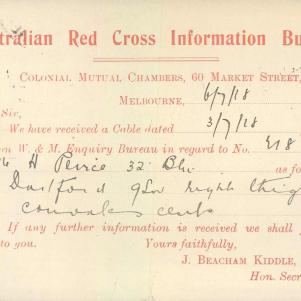 tralian Red Cross Information Bu
Colonial Mutual Chambers, 60 Market Street,
Melbourne, 6/7/18
Sir,
We have received a Cable dated 3/7/18
on W. & M. Enquiry Bureau in regard to No. 218
H Peirce 32 Bn. as fo
Dartford GSW right thig
convalescent
If any further information is received we shall
to you. Yours faithfully,
J. BEACHAM KIDDLE,
Hon. Secr